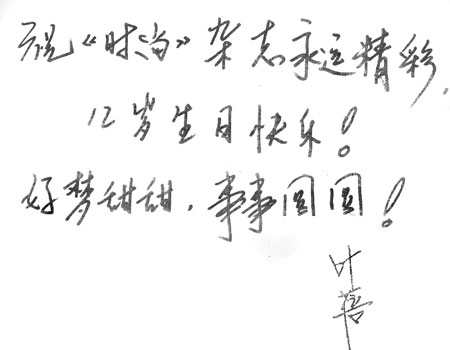 祝《时尚》杂志永远精彩,
12岁生日快乐!
好梦甜甜,事事圆圆!
叶蓓